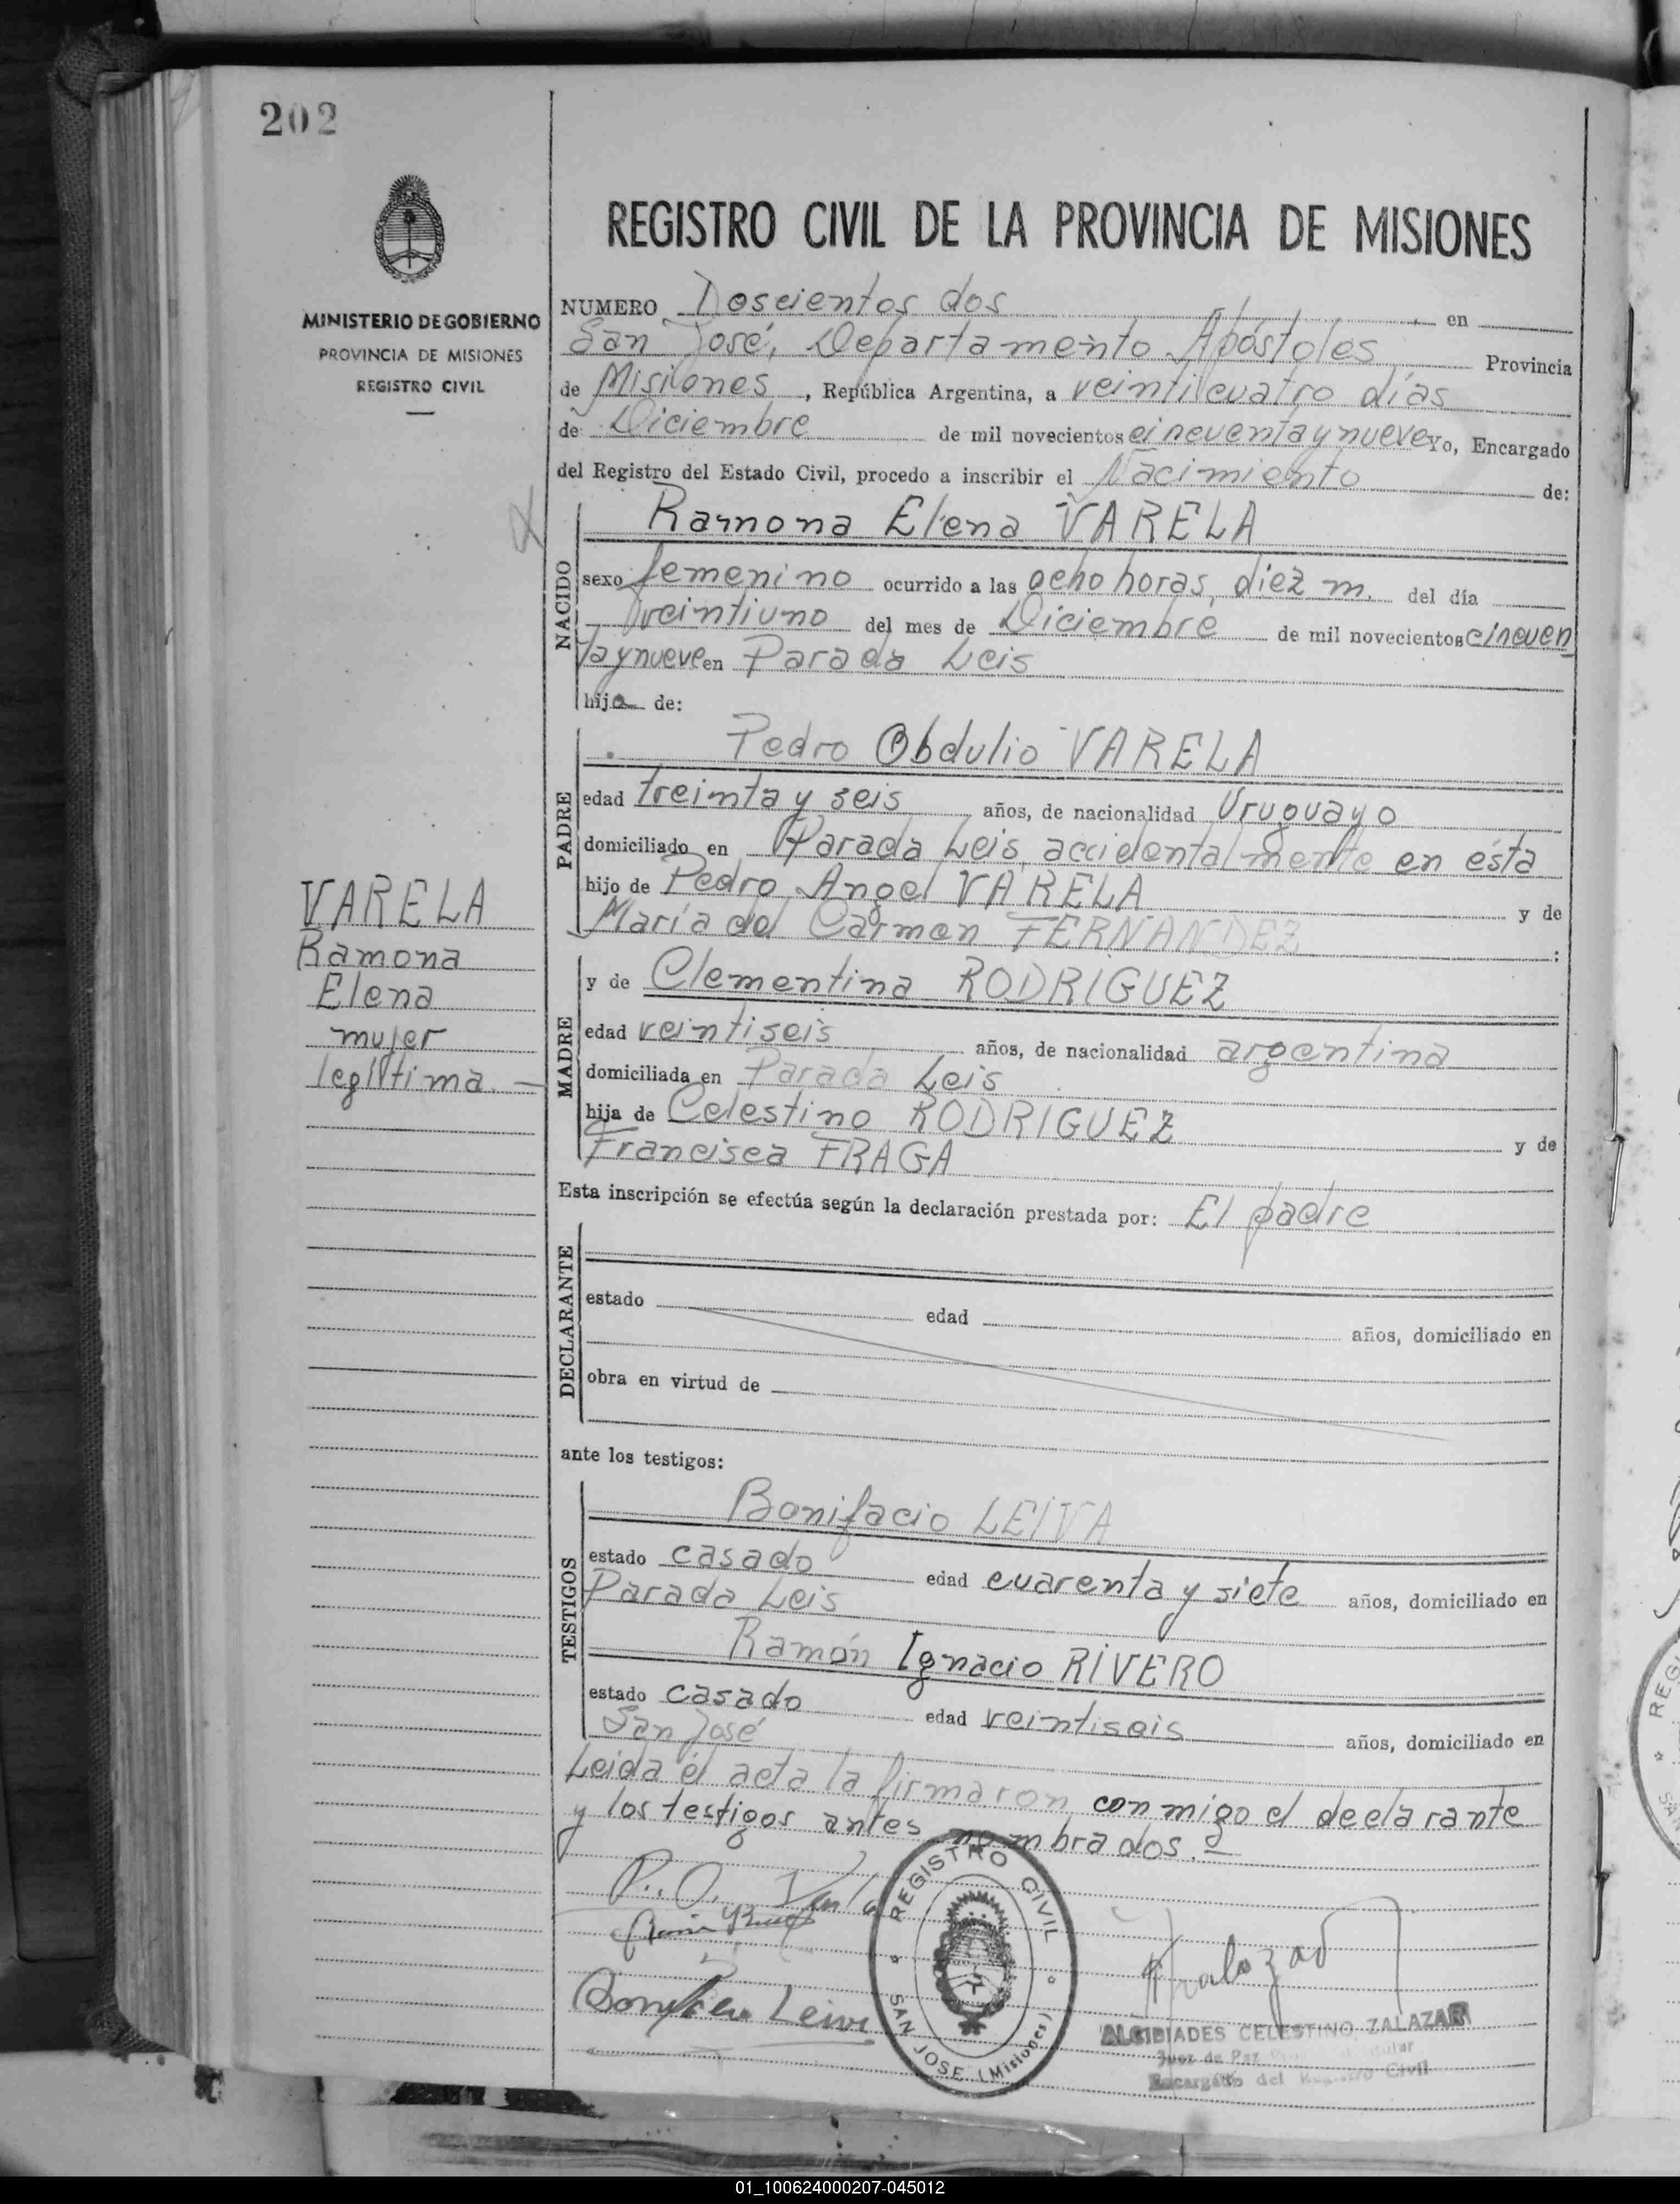 202
MINISTERIO DE GOBIERNO
PROVINCIA DE MISIONES
REGISTRO CIVIL
REGISTRO CIVIL DE LA PROVINCIA DE MISIONES
NUMERO Doscientos dos en
San José, Departamento Apóstoles Provincia
de Misiones, República Argentina, a veinticuatro días
de Diciembre de mil novecientos cincuenta y nueve Yo, Encargado
del Registro del Estado Civil, procedo a inscribir el Nacimiento de:
NACIDO
Ramona Elena VARELA
sexo femenino ocurrido a las ocho horas, diez m. del día
veintiuno del mes de Diciembre de mil novecientos cincuen
ta y nueve en Parada Leis
hija de:
PADRE
Pedro Obdulio VARELA
edad treinta y seis años, de nacionalidad Uruguayo
domiciliado en Parada Leis, accidentalmente en ésta
hijo de Pedro Angel VARELA y de
María del Carmen FERNANDEZ :
MADRE
y de Clementina RODRIGUEZ
edad veintiseis años, de nacionalidad argentina
domiciliada en Parada Leis
hija de Celestino RODRIGUEZ y de
Francisca FRAGA
VARELA
Ramona
Elena
mujer
legítima.—
Esta inscripción se efectúa según la declaración prestada por: El padre
DECLARANTE
estado edad años, domiciliado en
obra en virtud de
ante los testigos:
TESTIGOS
Bonifacio LEIVA
estado casado edad cuarenta y siete años, domiciliado en
Parada Leis
Ramón Ignacio RIVERO
estado casado edad veintiseis años, domiciliado en
San José
Leida el acta la firmaron conmigo el declarante
y los testigos antes nombrados.—
P. O. Varela
Bonifacio Leiva
REGISTRO CIVIL
SAN JOSE (Misiones)
ALCIBIADES CELESTINO ZALAZAR
Juez de Paz
Encargado del Registro Civil
01_100624000207-045012